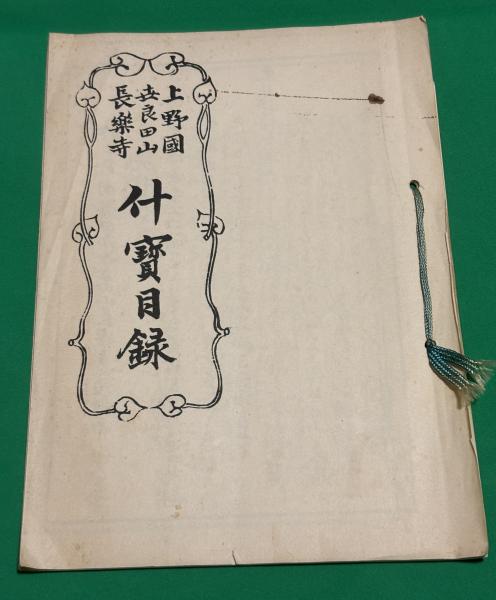 上野國
世良田山
長樂寺
什寶目録